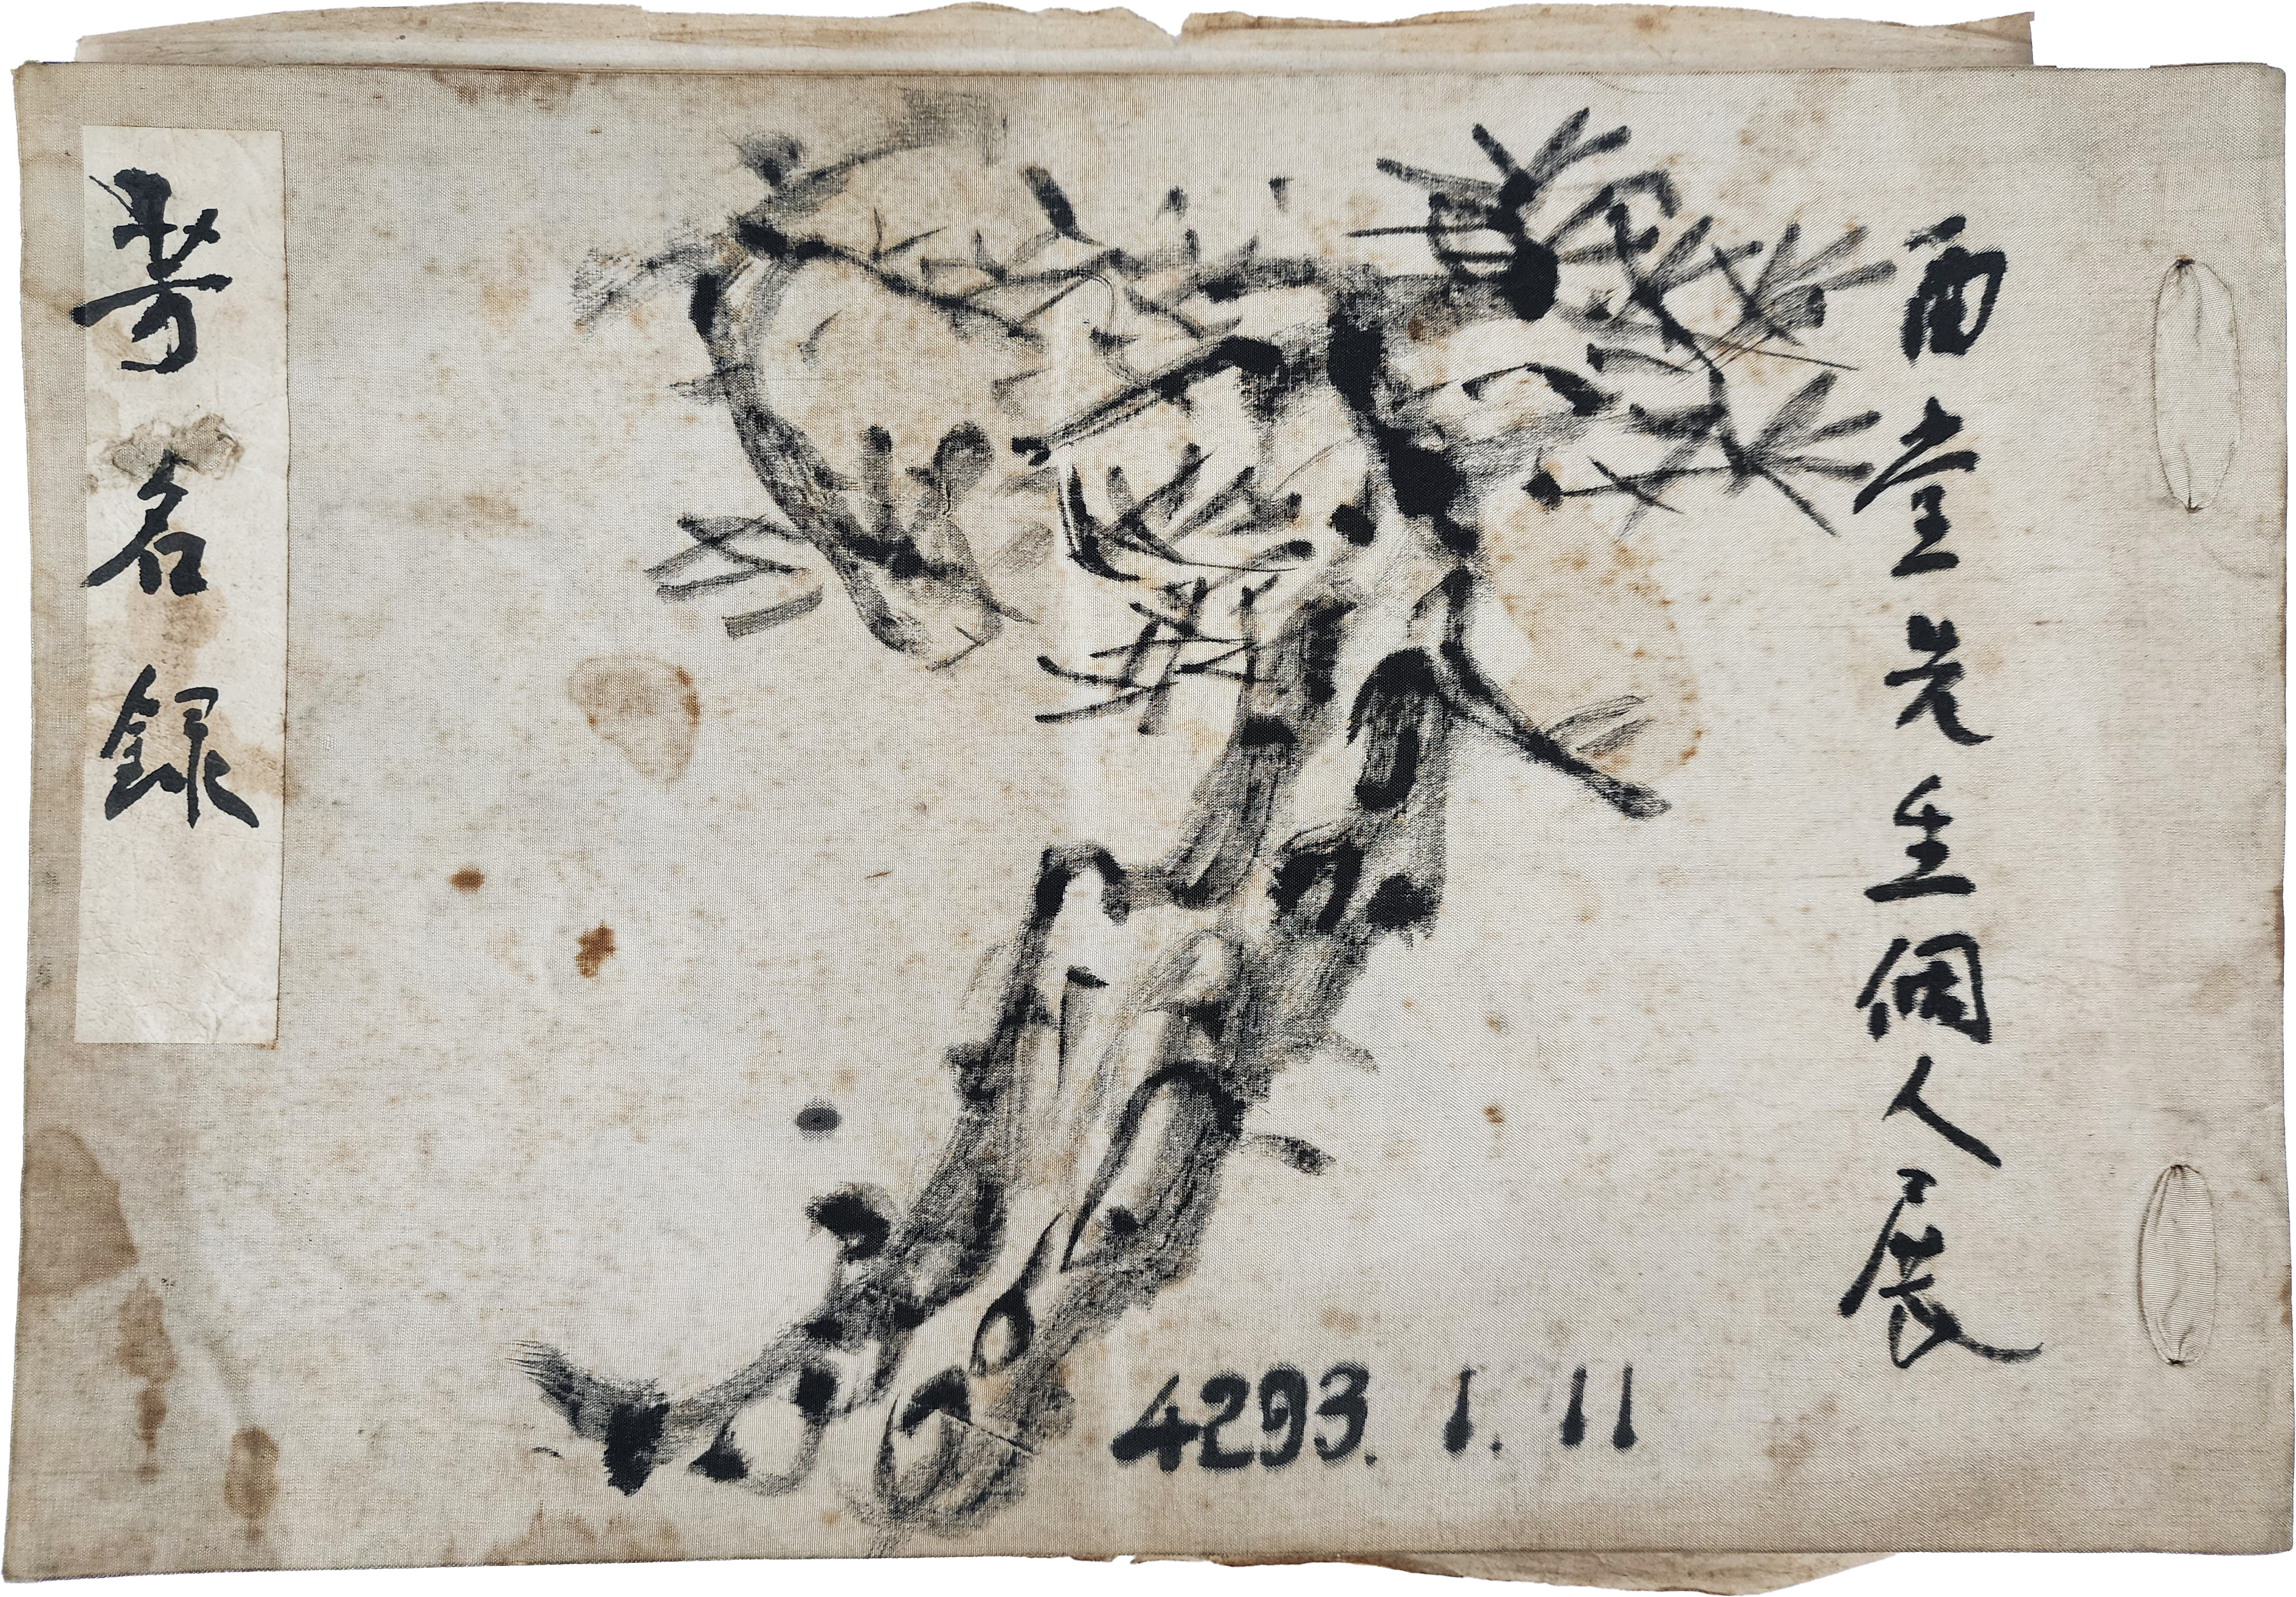 酉堂先生個人展
4293. 1. 11
芳名録